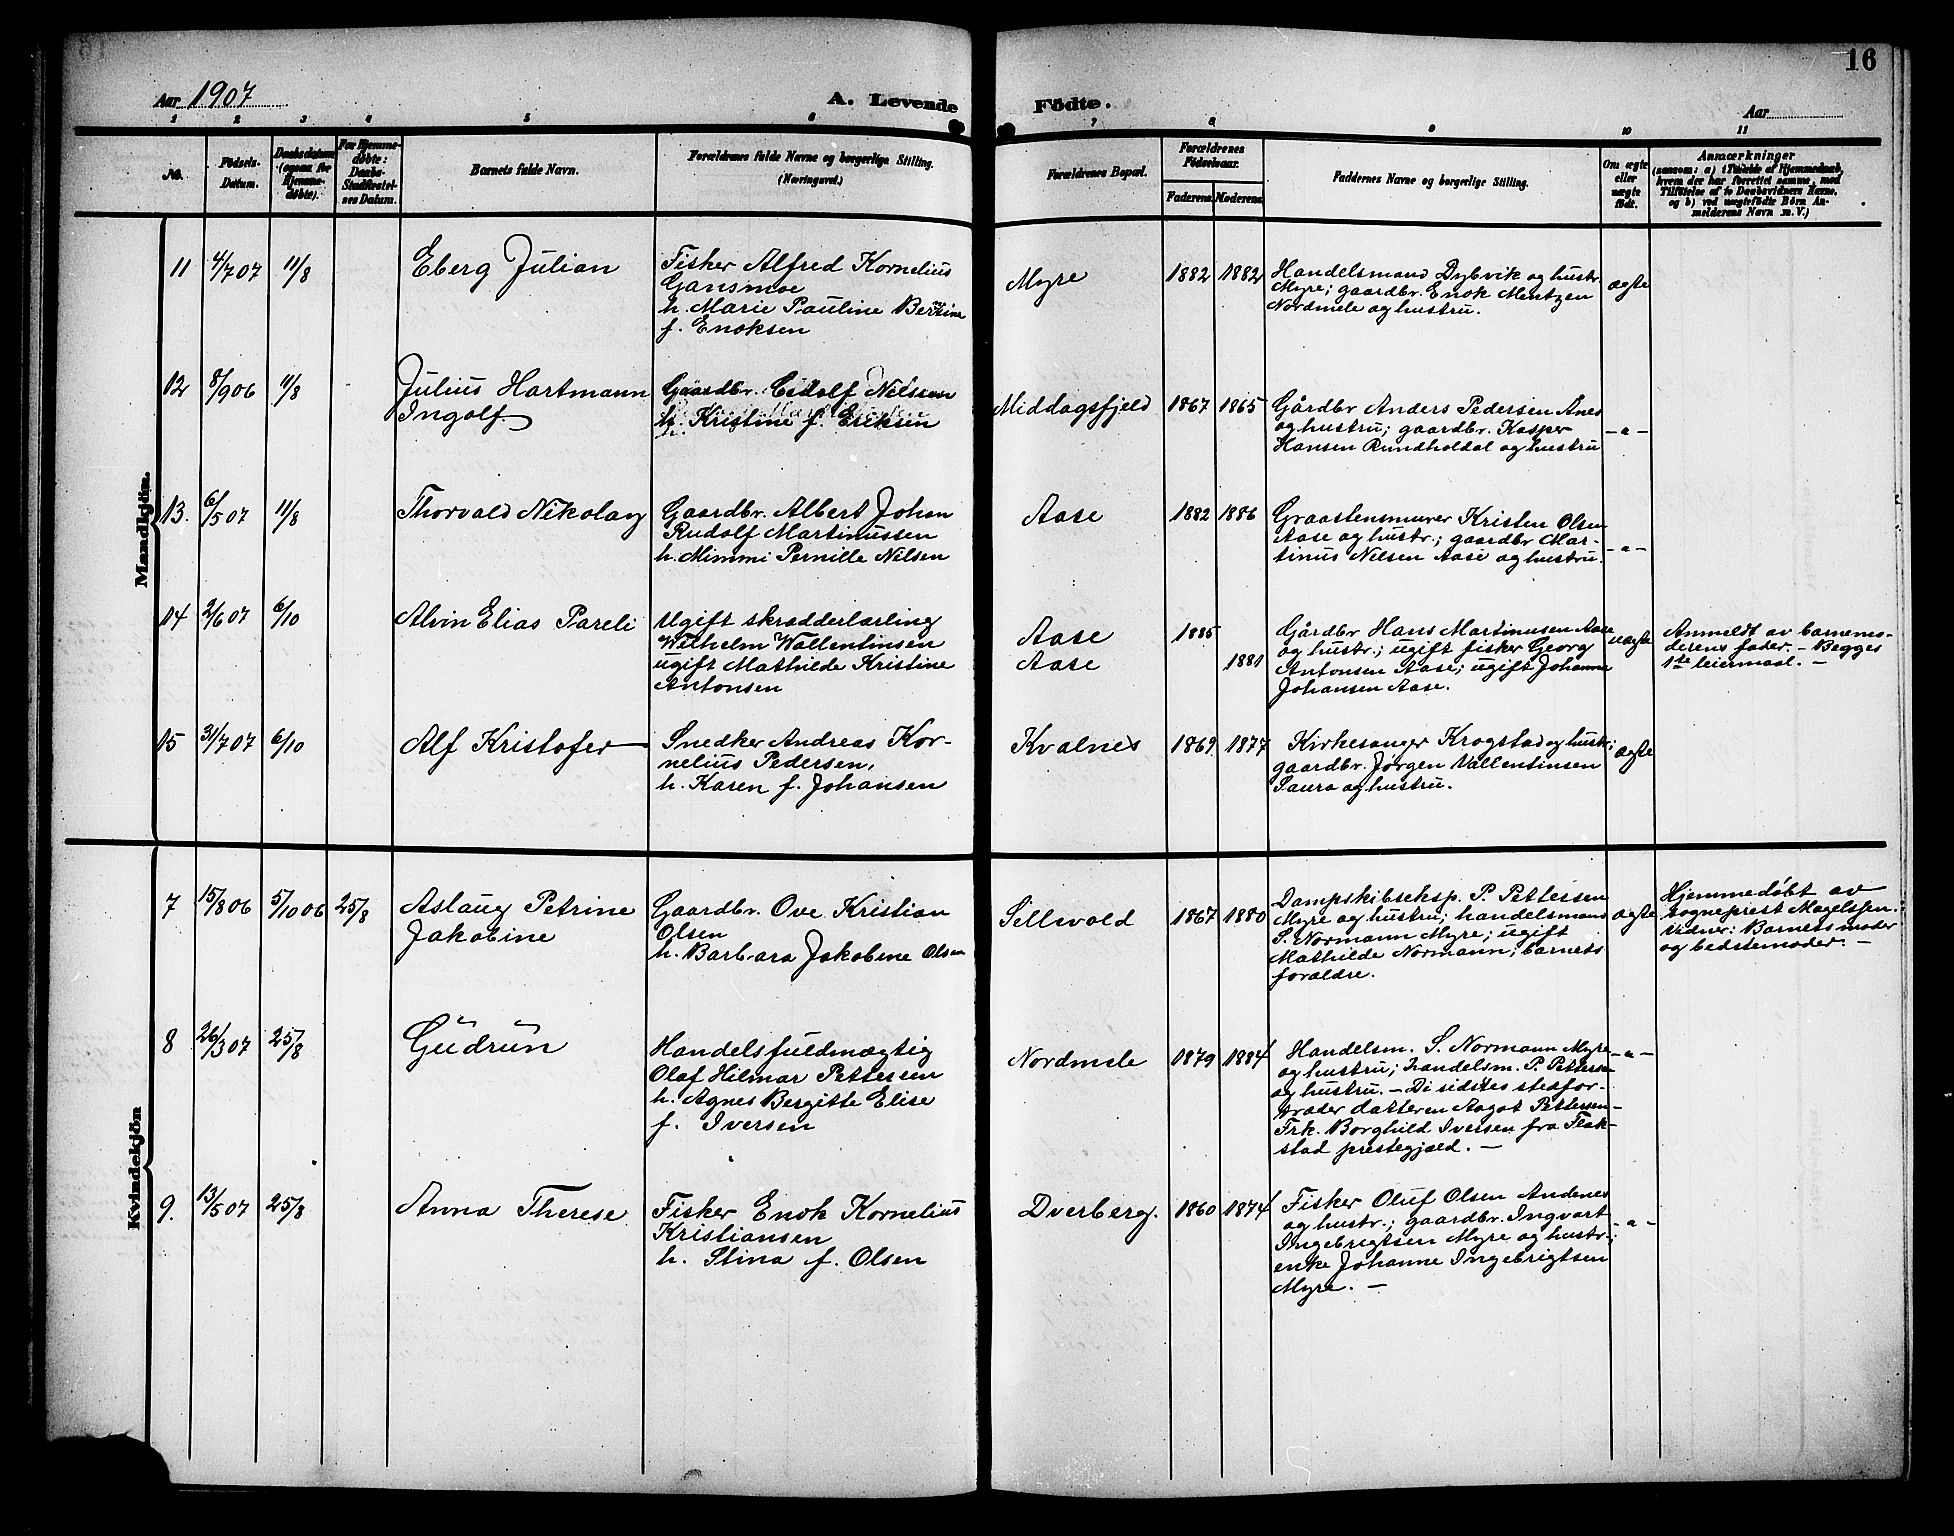 16
Aar 1907
A. Levende Födte.
Aar
1 2 3 4 5 6 7 8 9 10 11
No.
Födsels-
Datum.
Daabsdatum
(ogsaa for
Hjemme-
döbte).
For Hjemme-
döbte:
Daabs-
Stadfæstel-
ses Datum.
Barnets fulde Navn.
Forældrenes fulde Navne og borgerlige Stilling.
(Næringsvei.)
Forældrenes Bopæl.
Forældrenes
Födselsaar.
Faderens. Moderens.
Faddernes Navne og borgerlige Stilling.
Om ægte
eller
uægte
födt.
Anmærkninger
(saasom: a) i Tilfælde af Hjemmedaab,
hvem der har forrettet samme, med
Tilföielse af to Daabsvidners Navne,
og b) ved uægtefödte Börn An-
melderens Navn m. V.)
Mandkjön.
11 4/7 07 11/8 Eberg Julian
Fisker Alfred Kornelius
Gansmoe
h. Marie Pauline Bertine
f. Enoksen
Myre 1882 1882
Handelsmand Dybvik og hustr.
Myre; gaardbr. Enok Mentzen
Nordmele og hustru.
ægte
12 8/9 06 11/8 Julius Hartmann
Ingolf.
Gaardbr. Edolf Nilsen
h. Kristine f. Eriksen
Middagsfjeld 1867 1865
Gårdbr Anders Pedersen Anes
og hustru; gaardbr. Kasper
Hansen Rundholdal og hustru
-"-
13. 6/5 07 11/8 Thorvald Nikolay
Gaardbr. Albert Johan
Rudolf Martinussen
h. Mimmi Pernille Nilsen
Aase 1882 1886
Graastensmurer Kristen Olsen
Aase og hustr.; gaardbr Mar-
tinus Nilsen Aase og hustru.
-"-
14 2/6 07 6/10 Alvin Elias Pareli
Ugift skrædderlærling
Wilhelm Wallentinsen
ugift Mathilde Kristine
Antonsen
Aase 1885
Aase 1881
Gårdbr Hans Martinusen Aase
og hustr.; ugift fisker Georg
Antonsen Aase; ugift Johanne
Johansen Aase.
uægte
Anmeldt av barnemo-
derens fader. - Begges
1ste leiermaal. -
15 31/7 07 6/10 Alf Kristofer
Snedker Andreas Kor-
nelius Pedersen,
h. Karen f. Johansen
Kvalnes 1869 1877
Kirkesanger Krogstad og hustr;
gaardbr. Jørgen Vallentinsen
Saura og hustru.
ægte
Kvindekjön
7 15/8 06 5/10 06 25/8 Aslaug Petrine
Jakobine
Gaardbr. Ove Kristian
Olsen
h. Barbara Jakobine Olsen
Sellevold 1867 1880
Dampskibseksp. P. Pettersen
Myre og hustru; handelsmand
S. Normann Myre; ugift
Mathilde Normann; barnets
forældre.
ægte
Hjemmedøbt av
sogneprest Magelssen.
Vidner: Barnets moder
og bedstemoder. -
8 26/3 07 25/8 Gudrun
Handelsfuldmægtig
Olaf Hilmar Pettersen
h. Agnes Bergitte Elise
f. Iversen
Nordmele 1879 1884
Handelsm. S. Normann Myre
og hustru; handelsm. P. Petters.
og hustru. - De sidstes stedfor-
træder datteren Aagot Pettersen -
Frk. Borghild Iversen fra Flak-
stad prestegjæld. -
-"-
9. 13/5 07 25/8 Anna Therese
Fisker Enok Kornelius
Kristiansen
h. Stina f. Olsen
Dverberg. 1860 1874
Fisker Oluf Olsen Andenes
og hustr.; gaardbr. Ingvart
Ingebrigtsen Myre og hustr.;
enke Johanne Ingebrigtsen
Myre. -
-"-